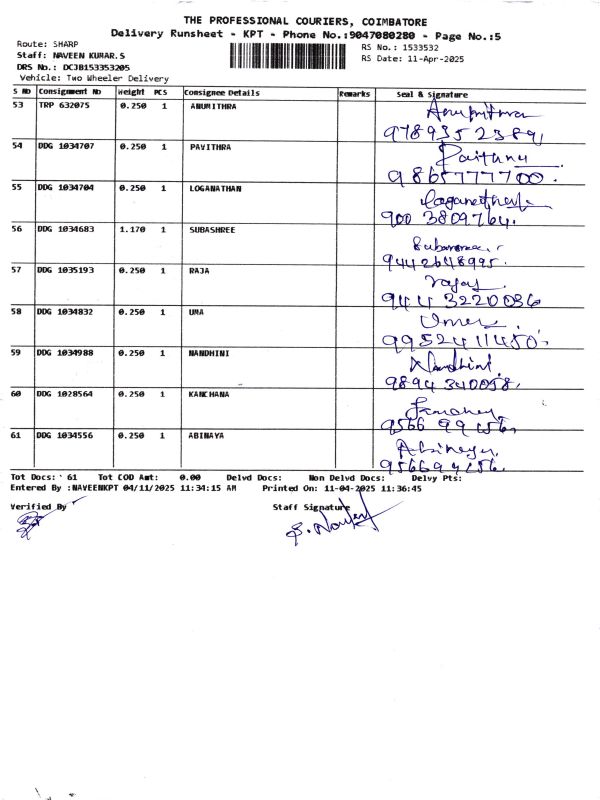 THE PROFESSIONAL COURIERS, COIMBATORE
Delivery Runsheet - KPT - Phone No.:9047080280 - Page No.:5
Route: SHARP
RS No.: 1533532
Staff: NAVEEN KUMAR.S
RS Date: 11-Apr-2025
DRS No.: DCJB153353205
Vehicle: Two Wheeler Delivery
S No Consignment No Weight PCS Consignee Details Remarks Seal & Signature
53 TRP 632075 0.250 1 ANUMITHRA Anumithra
9789352389
54 DDG 1034707 0.250 1 PAVITHRA
9865777700.
55 DDG 1034704 0.250 1 LOGANATHAN
900 3809764.
56 DDG 1034683 1.170 1 SUBASHREE
9442648995.
57 DDG 1035193 0.250 1 RAJA
9443220036
58 DDG 1034832 0.250 1 UMA
9952411450
59 DDG 1034988 0.250 1 NANDHINI Nandhini
9894340058
60 DDG 1028564 0.250 1 KANCHANA
61 DDG 1034556 0.250 1 ABINAYA Abinaya
Tot Docs: 61 Tot COD Amt: 0.00 Delvd Docs: Non Delvd Docs: Delvy Pts:
Entered By :NAVEENKPT 04/11/2025 11:34:15 AM Printed On: 11-04-2025 11:36:45
Verified By Staff Signature